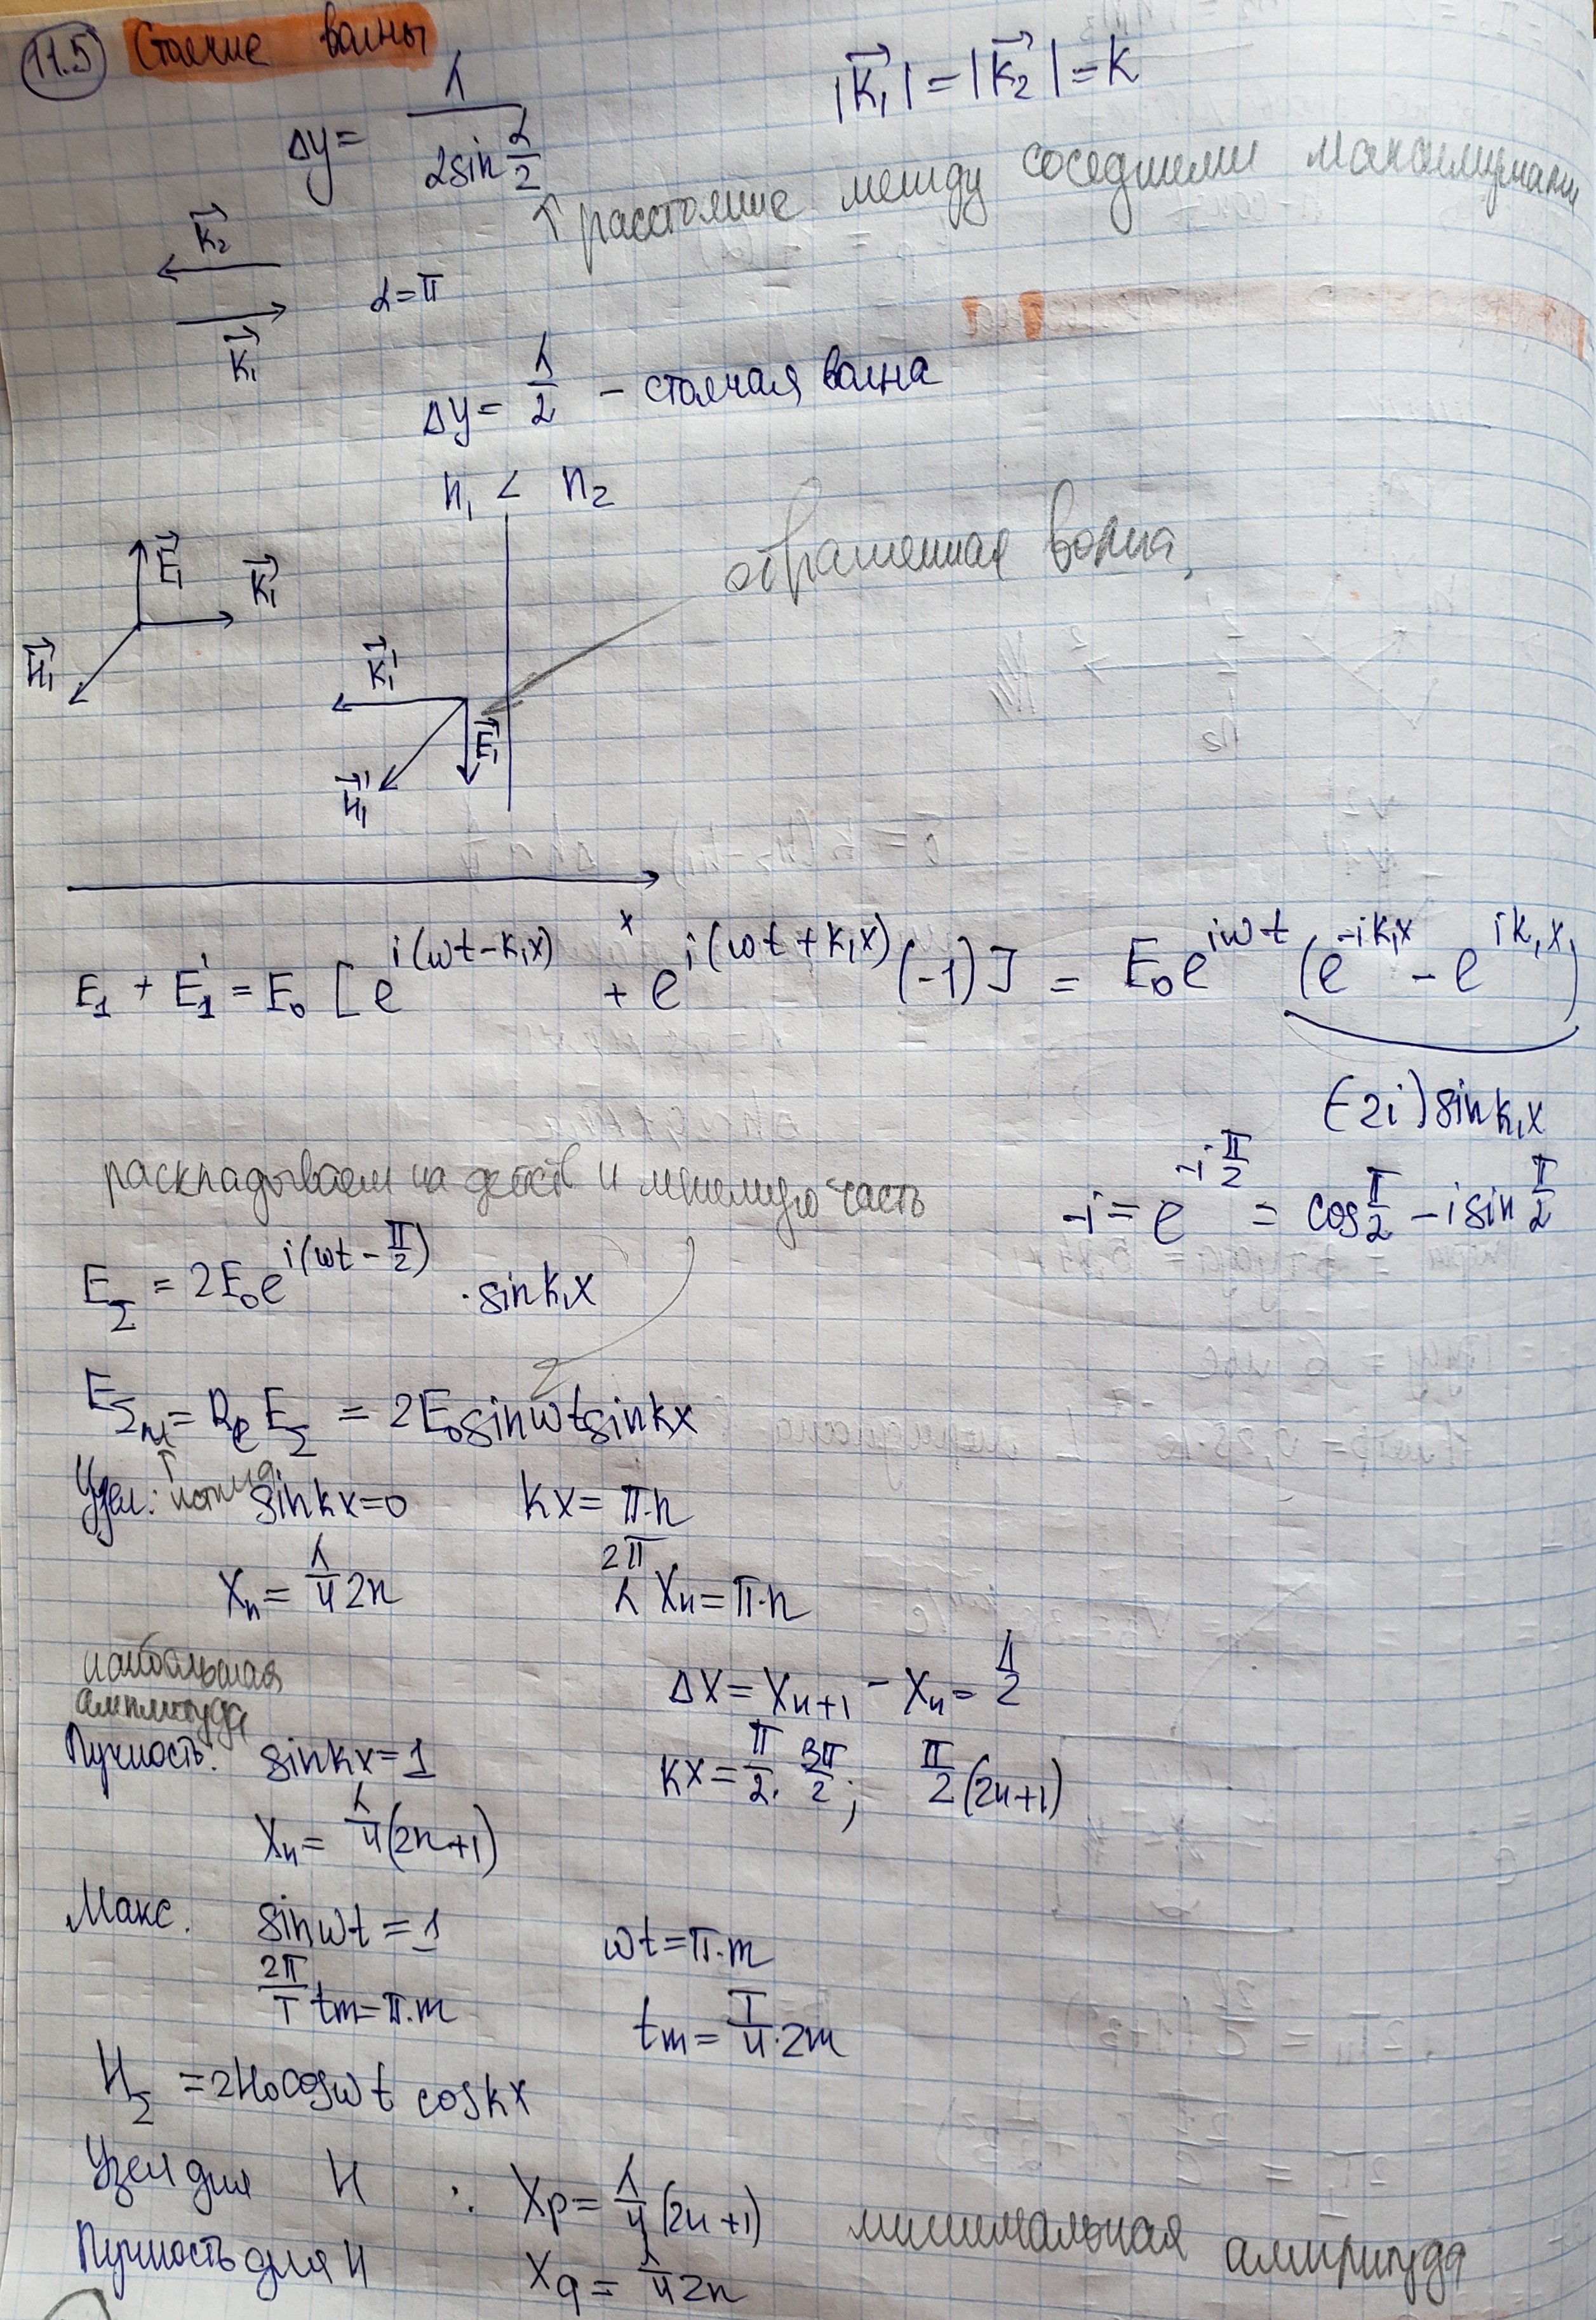 11.5 Стоячие волны
Δy = λ / (2 sin α/2)
|K⃗₁| = |K⃗₂| = K
↑ расстояние между соседними максимумами
K⃗₂
K⃗₁
α = π
Δy = λ/2 – стоячая волна
n₁ < n₂
отраженная волна
E⃗₁
K⃗₁
H⃗₁
K⃗₁'
E⃗₁'
H⃗₁'
x
E₁ + E₁' = E₀ [e^{i(ωt − k₁x)} + e^{i(ωt + k₁x)} (−1)] = E₀e^{iωt} (e^{−ik₁x} − e^{ik₁x})
(−2i) sin k₁x
раскладываем на действ и мнимую часть
−i = e^{−iπ/2} = cos π/2 − i sin π/2
E_Σ = 2E₀e^{i(ωt − π/2)} · sin k₁x
= Re E_Σ = 2E₀ sin ωt sin kx
Узел: sin kx = 0 kx = π·n
Xₙ = λ/4 2n 2π/λ Xₙ = π·n
наибольшая
амплитуда
ΔX = Xₙ₊₁ − Xₙ = λ/2
Пучность: sin kx = 1 kx = π/2; 3π/2; π/2 (2n+1)
Xₙ = λ/4 (2n+1)
Макс. sin ωt = 1 ωt = π·m
2π/T tm = π·m tm = T/4 · 2m
H_Σ = 2H₀ cos ωt cos kx
Узел для H : Xp = λ/4 (2n+1) минимальная амплитуда
Пучность для H Xq = λ/4 2n